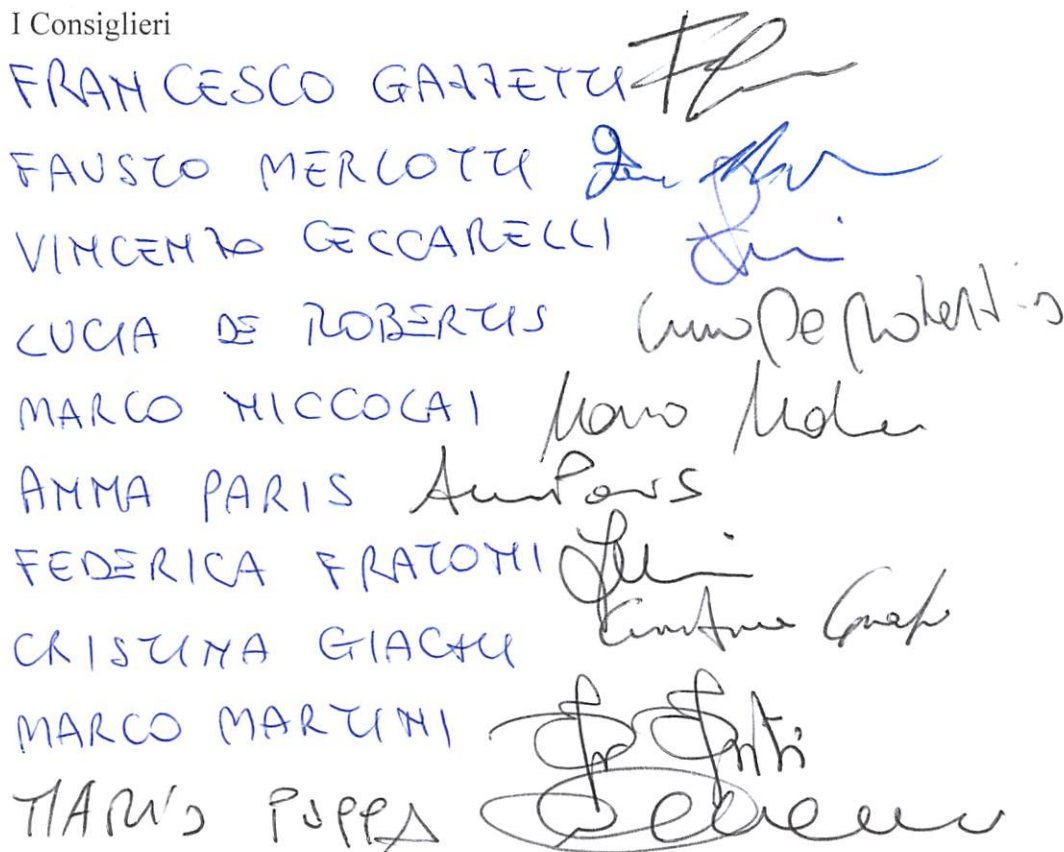 I Consiglieri
FRANCESCO GAZZETTI
FAUSTO MERLOTTI
VINCENZO CECCARELLI
LUCIA DE ROBERTIS Lucia De Robertis
MARCO NICCOLAI
ANNA PARIS Anna Paris
FEDERICA FRATONI
CRISTINA GIACHI
MARCO MARTINI
MARIO PUPPA